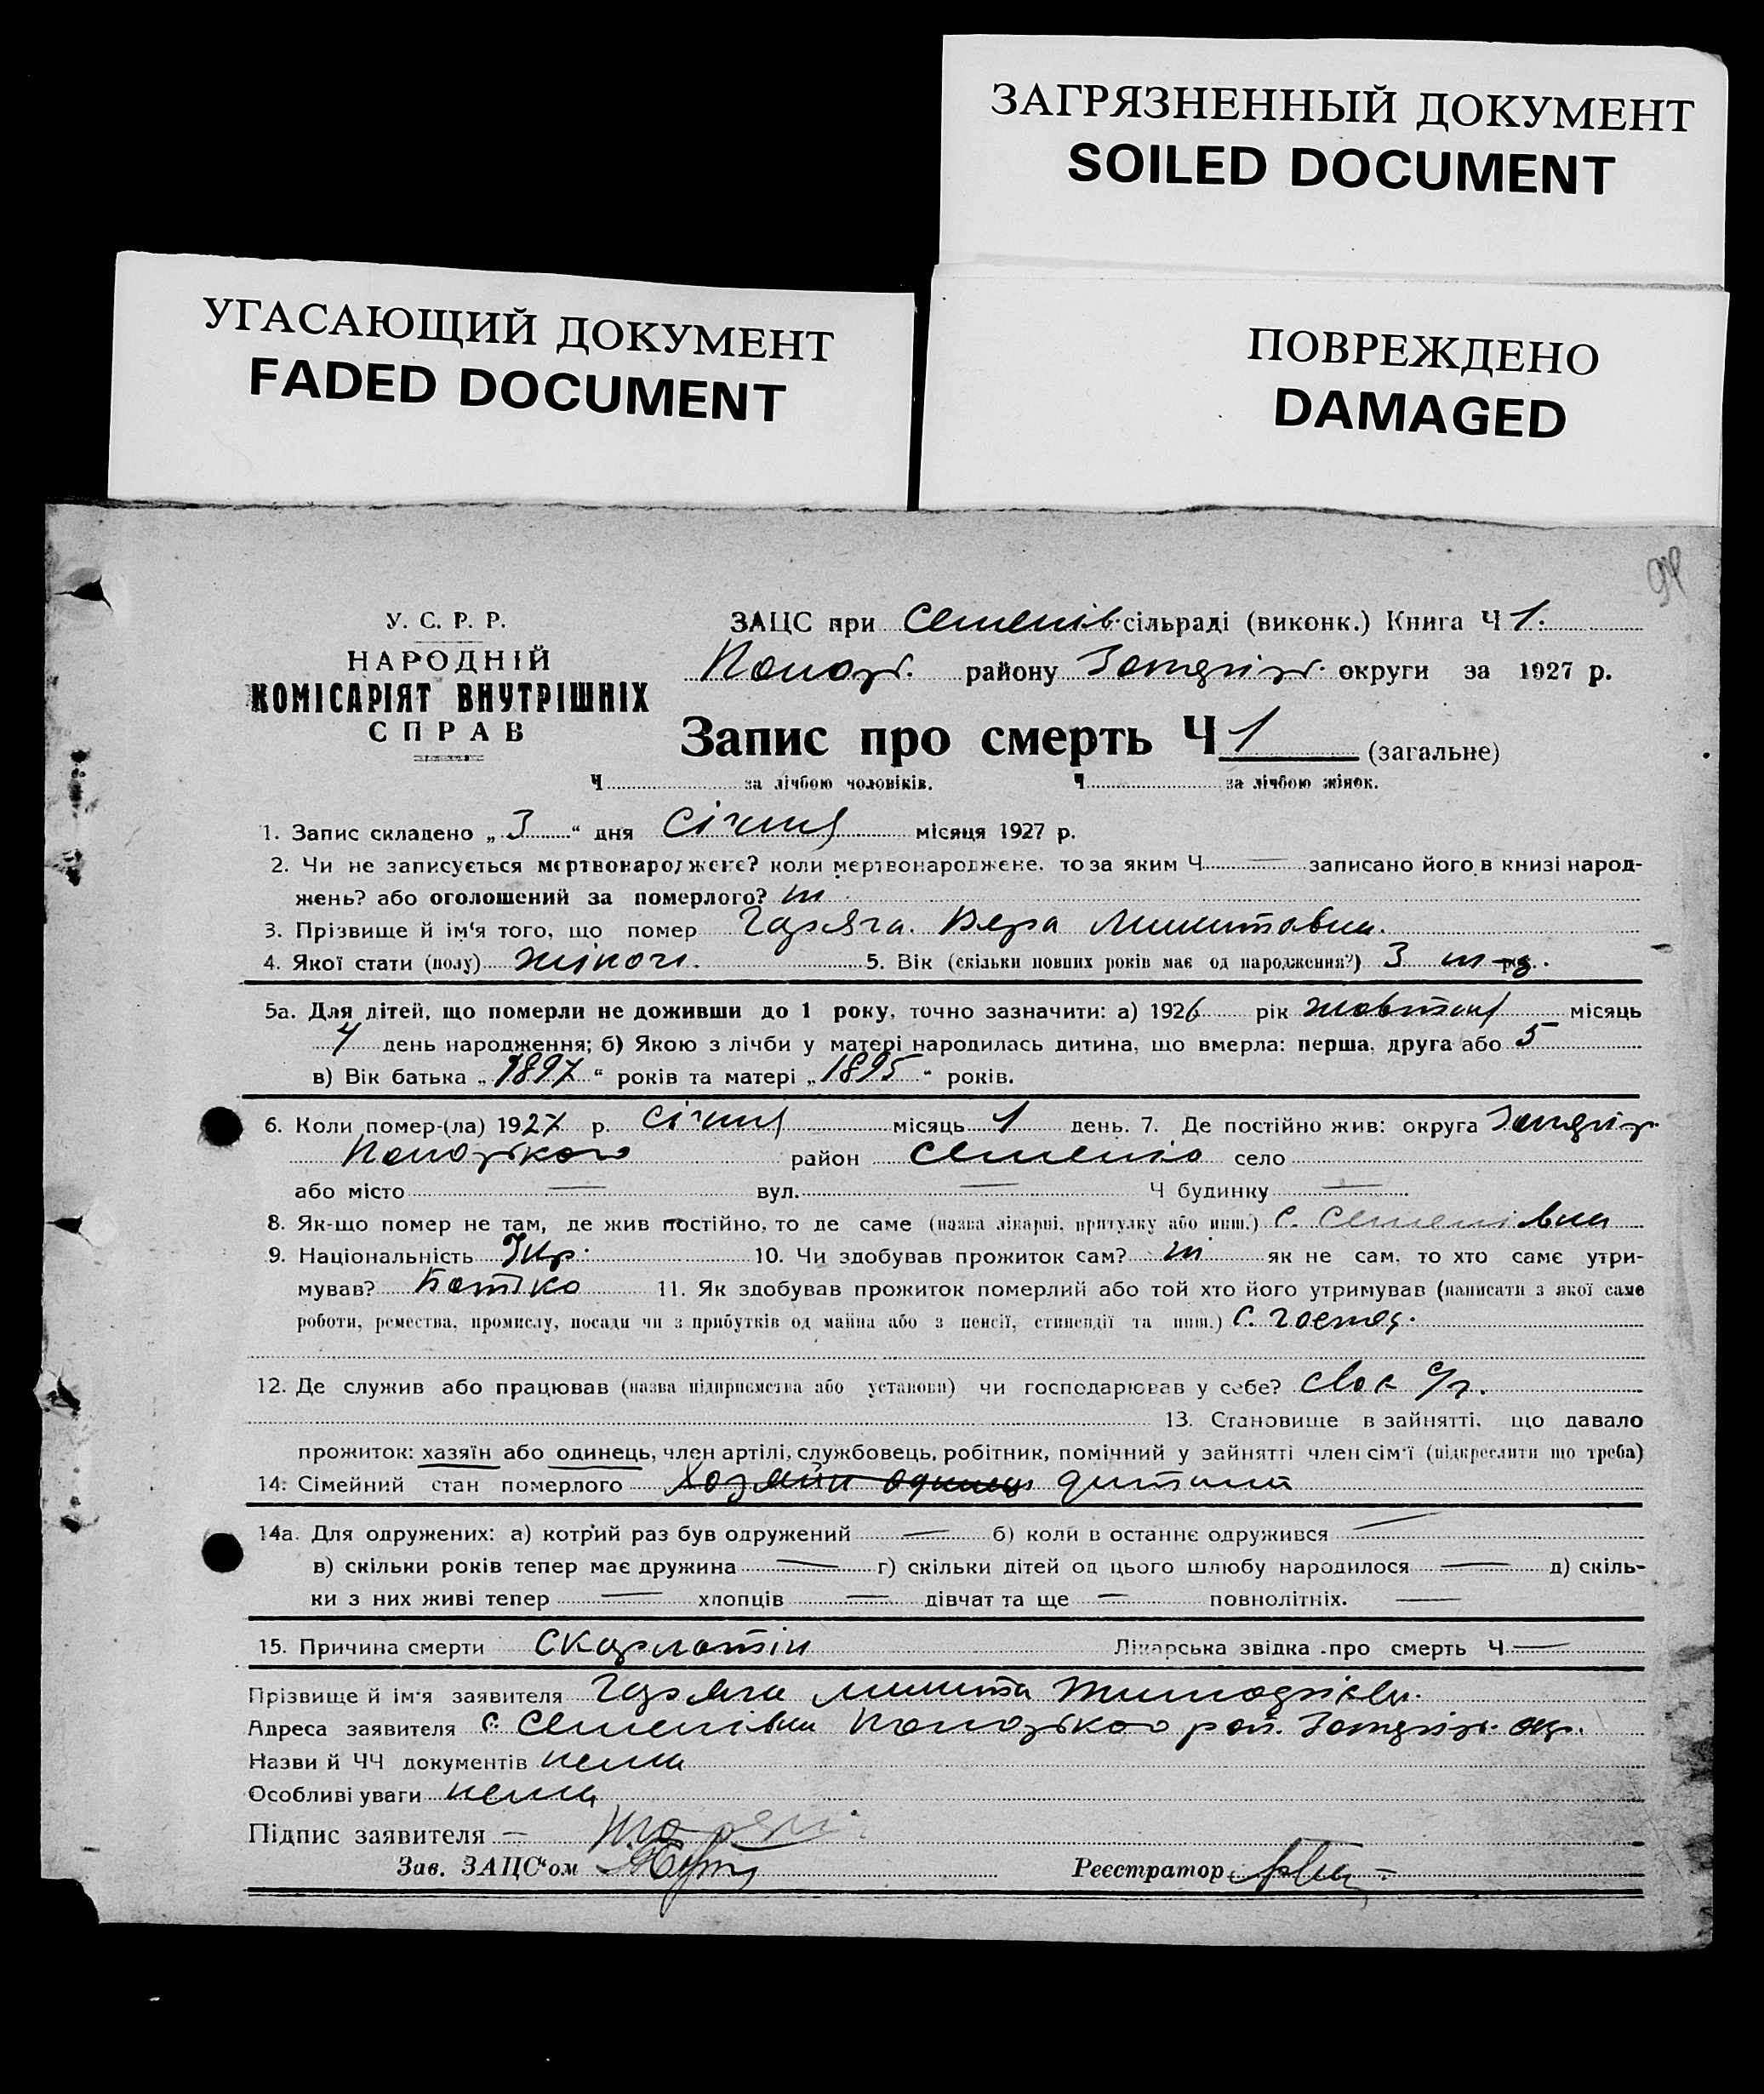 ЗАГРЯЗНЕННЫЙ ДОКУМЕНТ
SOILED DOCUMENT
УГАСАЮЩИЙ ДОКУМЕНТ
FADED DOCUMENT
ПОВРЕЖДЕНО
DAMAGED
У. С. Р. Р.
НАРОДНІЙ
КОМІСАРІЯТ ВНУТРІШНІХ
СПРАВ
ЗАЦС при Семенів. сільраді (виконк.) Книга Ч 1.
району округи за 1927 р.
Запис про смерть Ч 1 (загальне)
Ч за лічбою чоловіків. Ч за лічбою жінок.
1. Запис складено „ 3 “ дня Січня місяця 1927 р.
2. Чи не записується мертвонароджене? коли мертвонароджене, то за яким Ч — записано його в книзі народ-
жень? або оголошений за померлого? ні
3. Прізвище й ім'я того, що помер Гаряча. Вера Микитовна.
4. Якої стати (полу) жіноч. 5. Вік (скільки повних років має од народження?) 3 м-ц.
5а. Для дітей, що померли не доживши до 1 року, точно зазначити: а) 1926 рік жовтня місяць
4 день народження; б) Якою з лічби у матері народилась дитина, що вмерла: перша, друга або 5
в) Вік батька „ 1897 “ років та матері „ 1895 “ років.
6. Коли помер-(ла) 1927 р. Січня місяць 1 день. 7. Де постійно жив: округа
район Семенівка село
або місто — вул. — Ч будинку —
8. Як-що помер не там, де жив постійно, то де саме (назва лікарні, притулку або инш.) с. Семенівка
9. Національність Укр. 10. Чи здобував прожиток сам? ні як не сам, то хто саме утри-
мував? Батько 11. Як здобував прожиток померлий або той хто його утримував (написати з якої саме
роботи, ремества, промислу, посади чи з прибутків од майна або з пенсії, стипендії та инш.) С. господ.
12. Де служив або працював (назва підприємства або установи) чи господарював у себе? своє с/г.
13. Становище в зайнятті, що давало
прожиток: хазяїн або одинець, член артілі, службовець, робітник, помічний у зайнятті член сім'ї (підкреслити що треба)
14. Сімейний стан померлого Хозяйин одинець дитина
14а. Для одружених: а) котрий раз був одружений — б) коли в останнє одружився —
в) скільки років тепер має дружина — г) скільки дітей од цього шлюбу народилося — д) скіль-
ки з них живі тепер — хлопців — дівчат та ще — повнолітніх. —
15. Причина смерти Скарлатін Лікарська звідка про смерть Ч —
Прізвище й ім'я заявителя Гаряча Микита
Адреса заявителя с. Семенівка
Назви й ЧЧ документів нема
Особливі уваги нема
Підпис заявителя —
Зав. ЗАЦС'ом Реєстратор